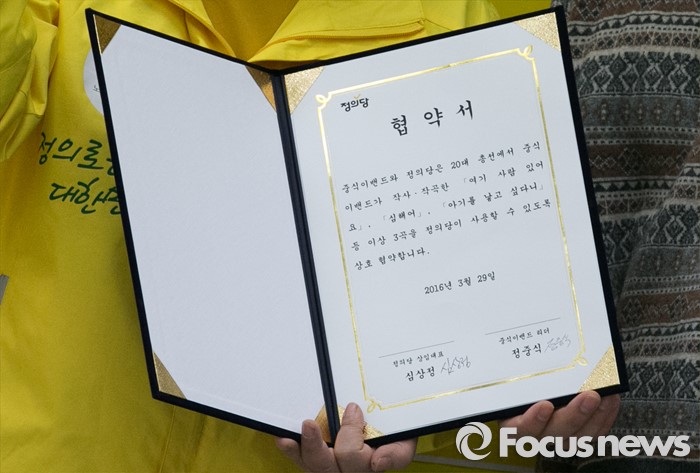 정의로운
대한민
정의당
협 약 서
중식이밴드와 정의당은 20대 총선에서 중식
이밴드가 작사·작곡한 「여기 사람 있어
요」, 「심해어」, 「아기를 낳고 싶다니」
등 이상 3곡을 정의당이 사용할 수 있도록
상호 협약합니다.
2016년 3월 29일
정의당 상임대표
심상정 심상정
중식이밴드 리더
정중식
Focusnews